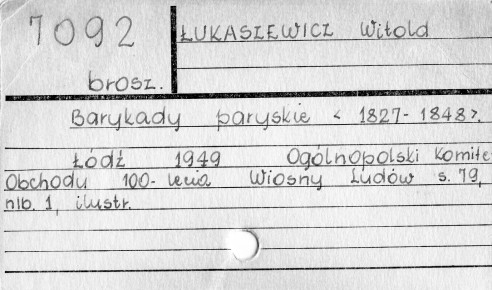 7092
brosz.
ŁUKASZEWICZ Witold
Barykady paryskie < 1827-1848 >.
Łódź 1949 Ogólnopolski Komite
Obchodu 100-lecia Wiosny Ludów s. 79,
nlb. 1, ilustr.